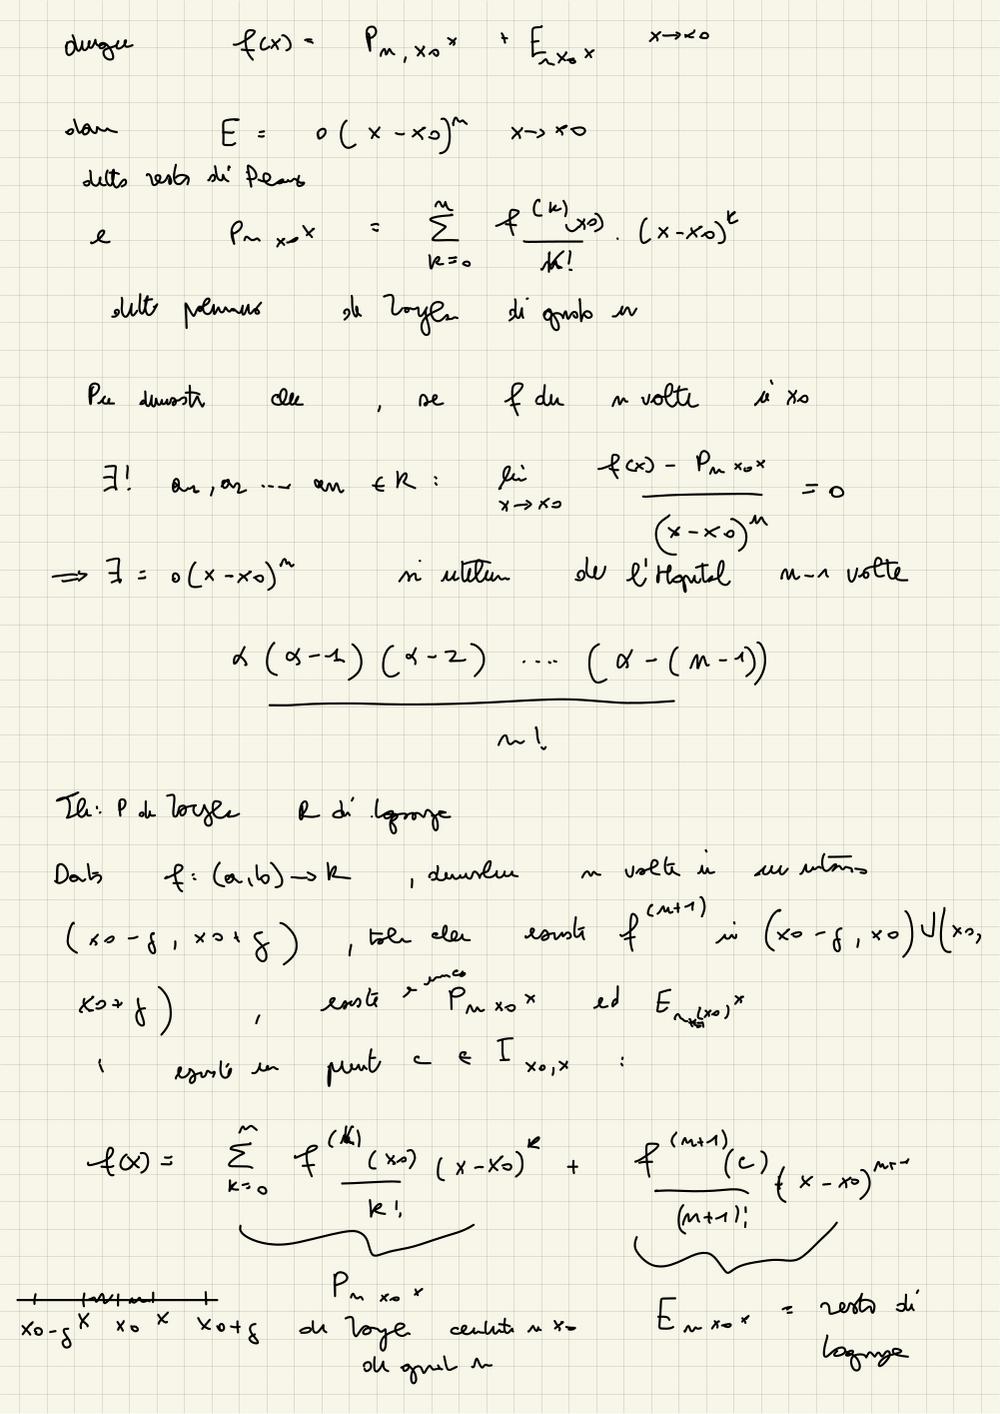 dunque f(x) = P_{n, x0} x + E_{n x0} x x→x0
E = o(x-x0)^n x→x0
detto resto di Peano
e P_{n x0} x = \sum_{k=0}^{n} \frac{f^{(k)}(x0)}{k!} · (x-x0)^k
di Taylor di grado n
, se f der n volte in x0
∃! a1, a2 .... an ∈ R : lim_{x→x0} \frac{f(x) - P_{n x0} x}{(x-x0)^n} = 0
⟹ E = o(x-x0)^n si utilizza de l'Hopital n-1 volte
\frac{α (α-1) (α-2) .... (α-(n-1))}{n!}
Th: P di Taylor R di Lagrange
Dato f: (a,b) → R , n volte in un intorno
(x0-δ, x0+δ) , tale che esiste f^{(n+1)} in (x0-δ, x0) ∪ (x0,
x0+δ) , esiste e unico P_{n x0} x ed E x
esiste un punto c ∈ I_{x0,x} :
f(x) = \sum_{k=0}^{n} \frac{f^{(k)}(x0)}{k!} (x-x0)^k + \frac{f^{(n+1)}(c)}{(n+1)!} (x-x0)^{n+1}
P_{n x0} x
x0-δ x x0 x x0+δ di Taylor centrato in x0 E_{n x0} x = resto di
di grado n Lagrange